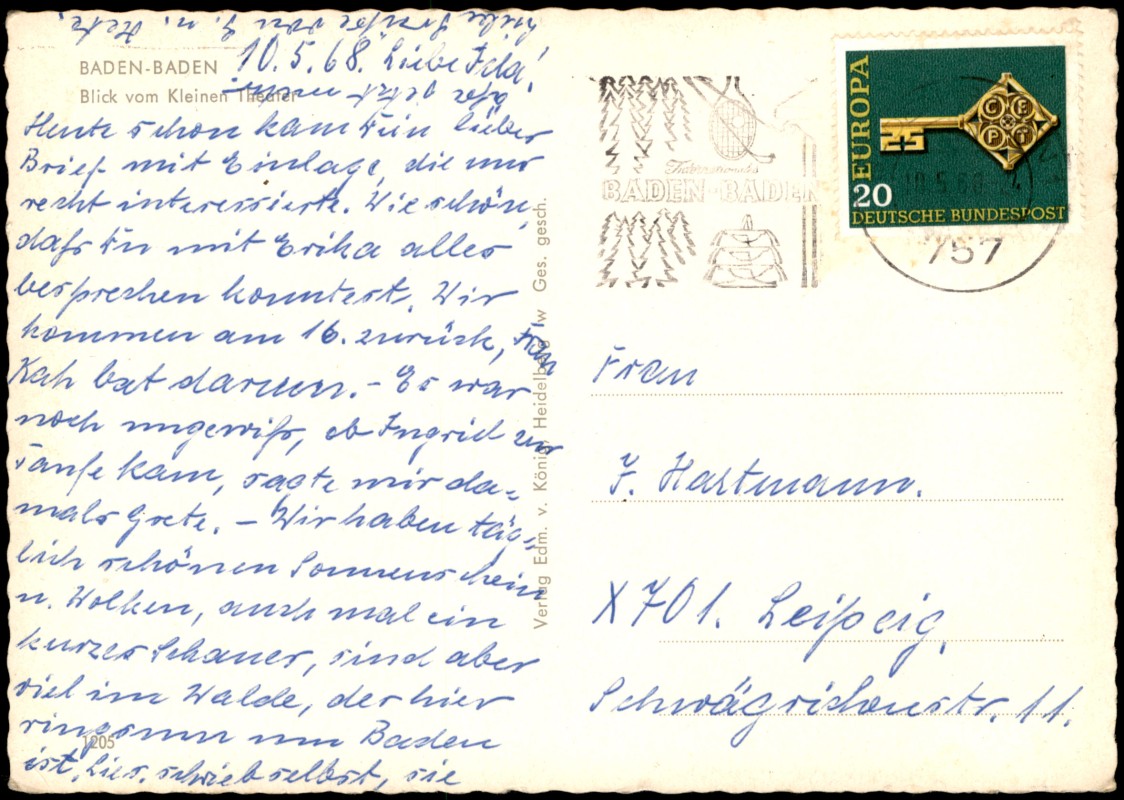 BADEN-BADEN
Blick vom Kleinen Theater
10.5.68. Liebe
Heute schon kam Dein lieber
Brief mit Einlage, die mich
recht interessierte. Wie schön,
daß Du mit Erika alles
besprechen konntest. Wir
kommen am 16. zurück, Frau
Kah bat darum. – Es war
noch ungewiß, ob Ingrid zur
Taufe kam, sagte mir da-
mals Grete. – Wir haben täg-
lich schönen Sonnenschein
u. Wolken, auch mal ein
kurzes Schauer, sind aber
viel im Walde, der hier
ringsum um Baden
ist. Lies. schrieb selbst, sie
geht jetzt
Liebe Grüße von
1205
Verlag Edm. v. König, Heidelberg Ges. gesch.
Internationales
BADEN-BADEN
10.5.68
757
EUROPA
CEPT
20
DEUTSCHE BUNDESPOST
Frau
J. Hartmann.
X701. Leipzig,
Schwägrichenstr. 11.